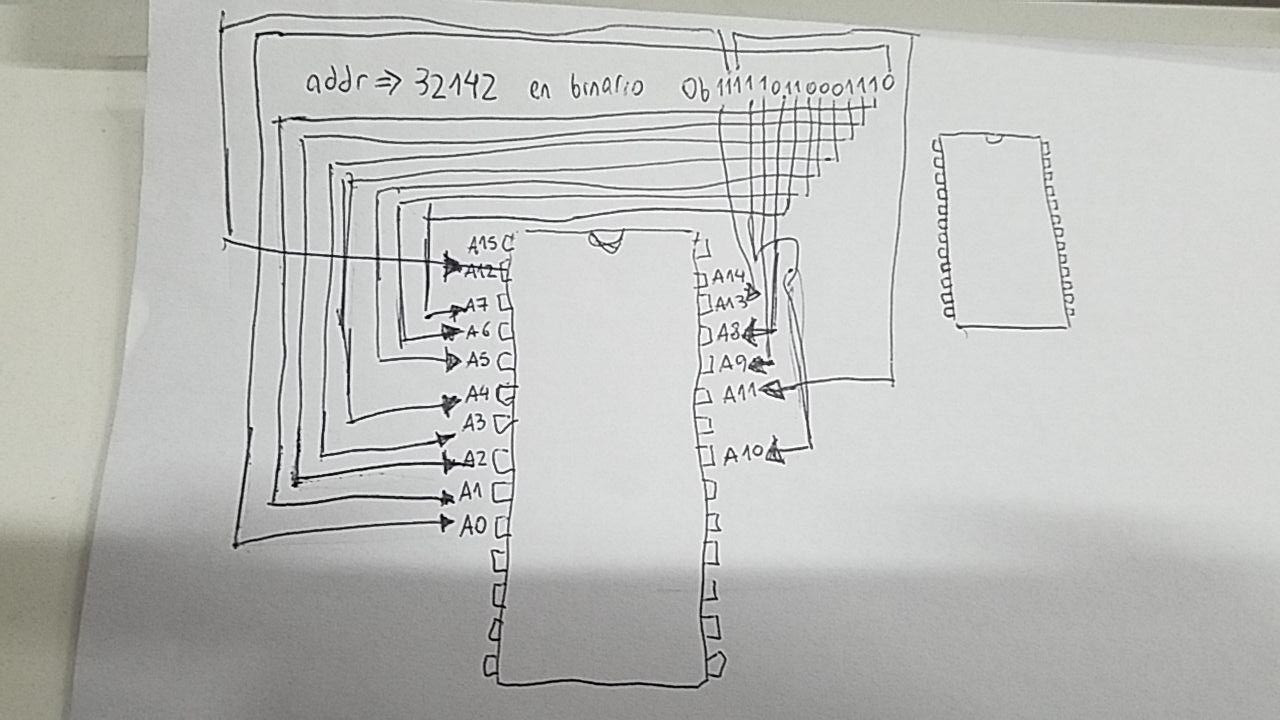 addr ⇒ 32142 en binario 0b 111110110001110
A15
A12
A7
A6
A5
A4
A3
A2
A1
A0
A14
A13
A8
A9
A11
A10